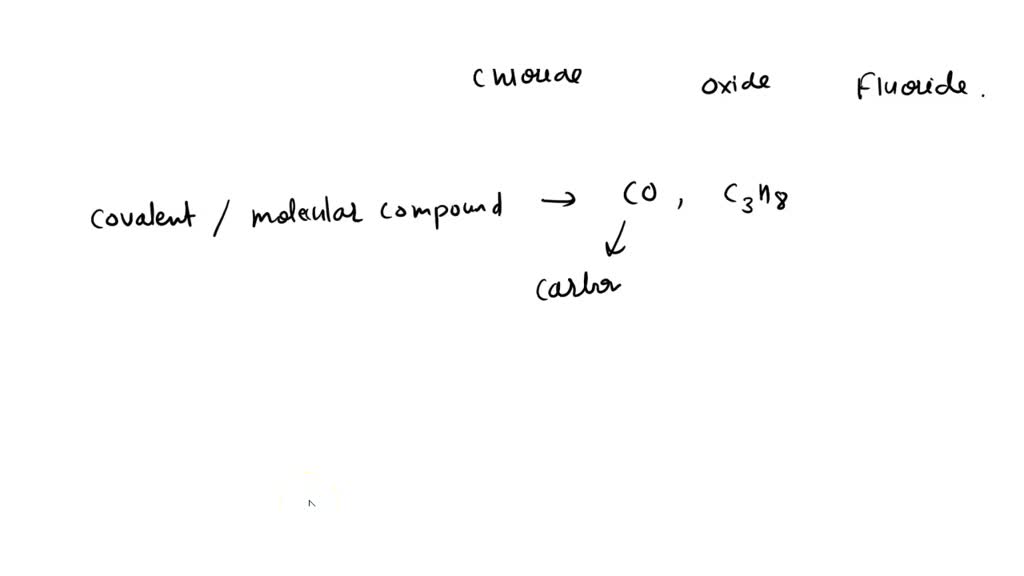 Chloride oxide Fluoride.
covalent / molecular compound → CO, C3H8
carbo